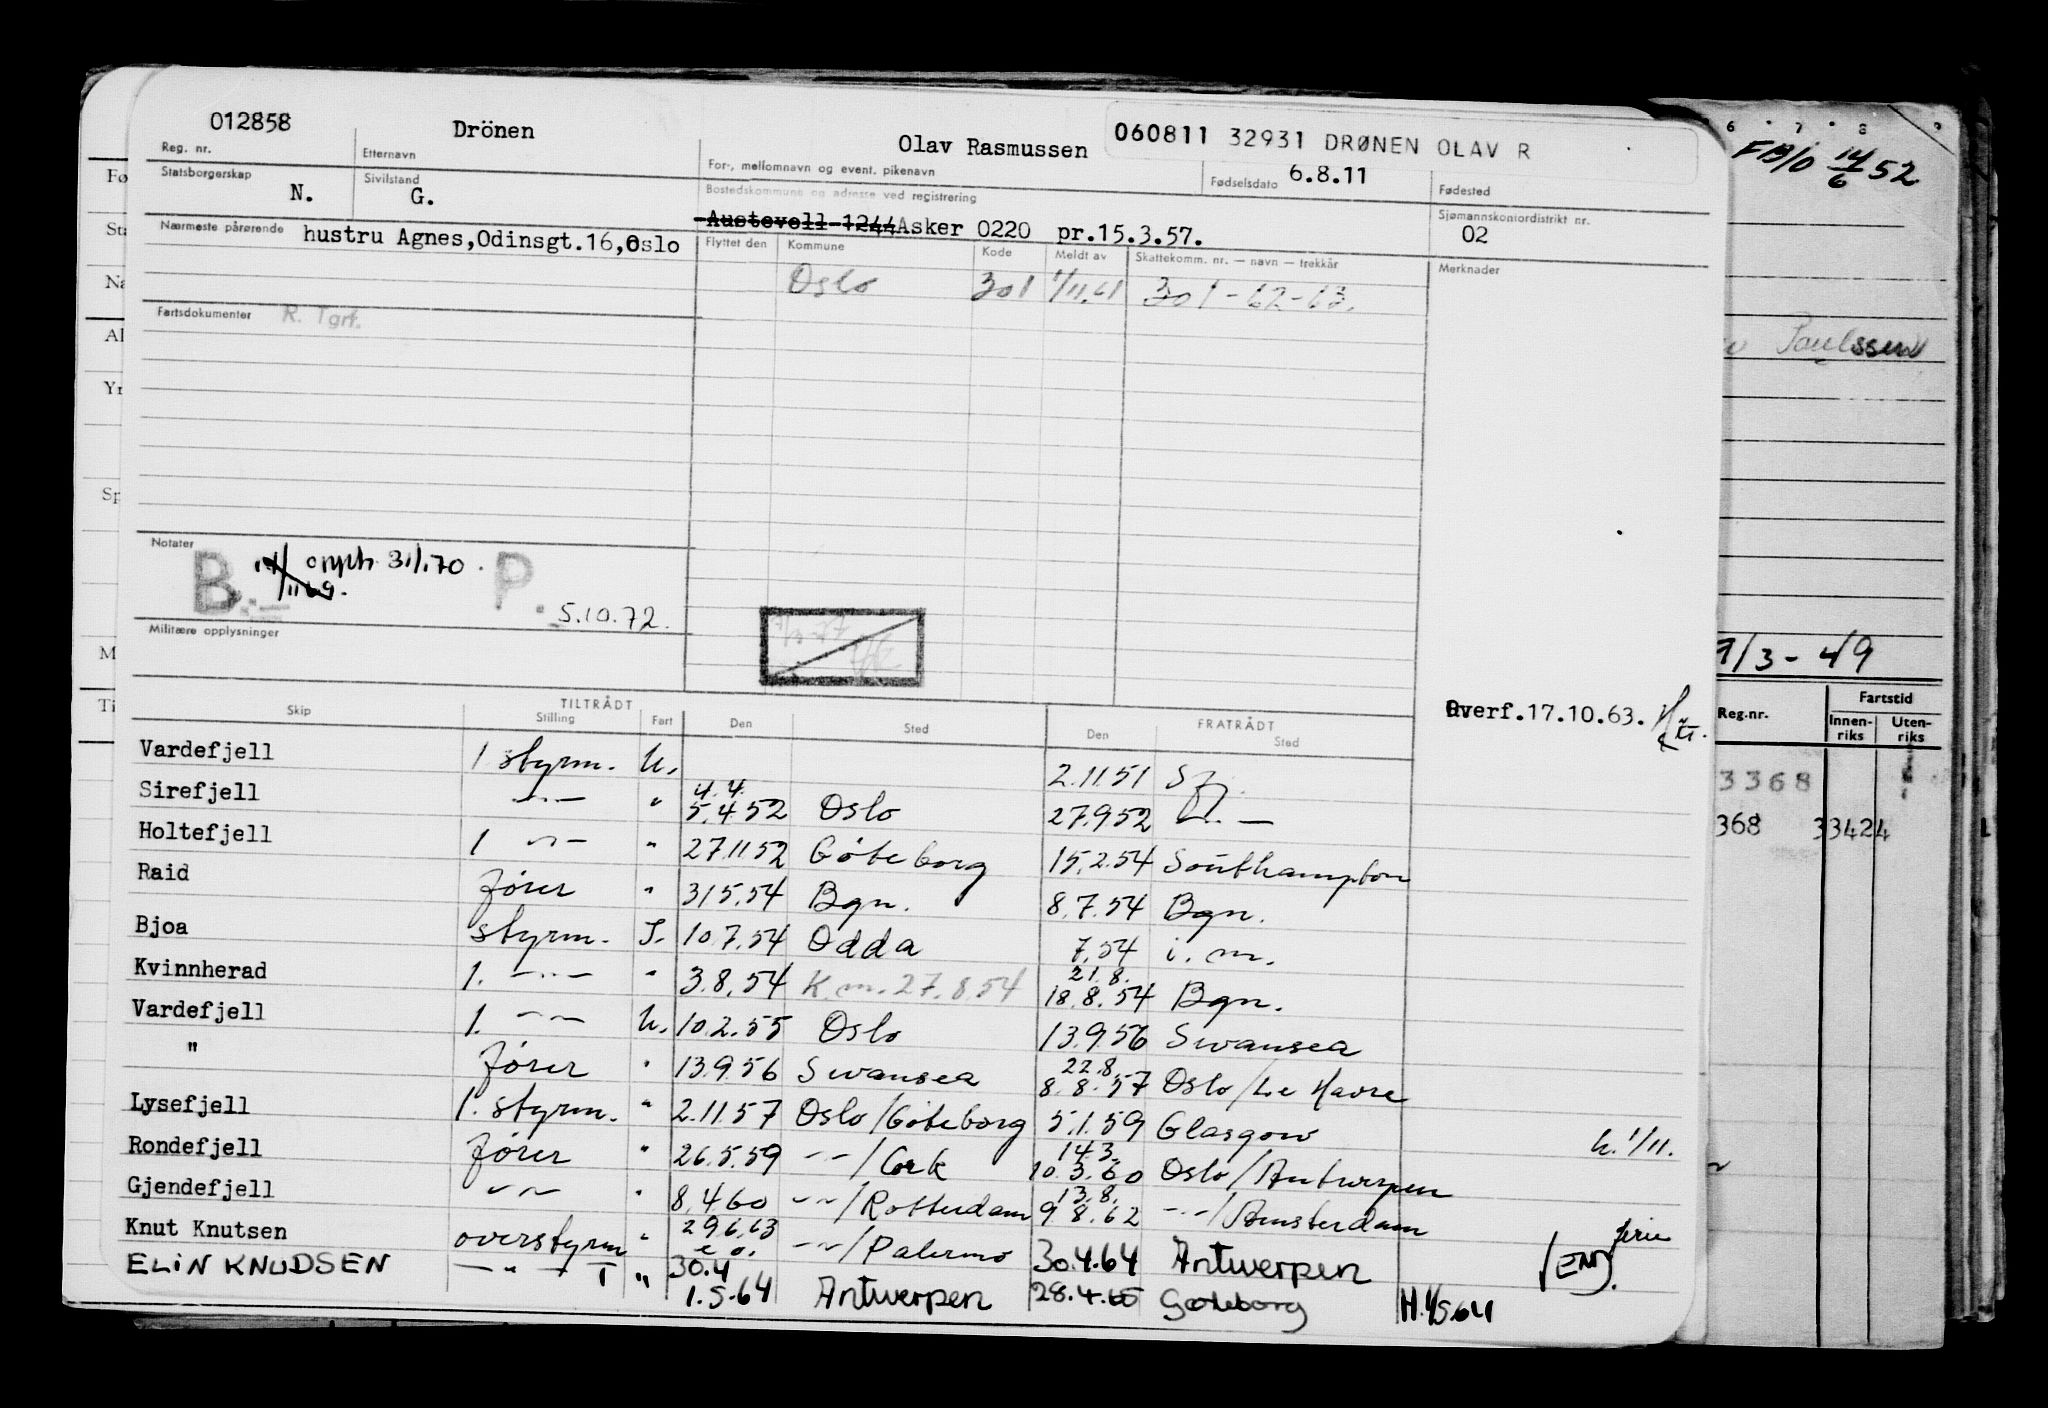 012858 Drönen Olav Rasmussen 060811 32931 DRØNEN OLAV R
Reg. nr. Etternavn For-, mellomnavn og event. pikenavn Fødselsdato 6.8.11 Fødested
Statsborgerskap N. Sivilstand G. Bostedskommune og adresse ved registrering Sjømannskontordistrikt nr.
Austevell 1244 Asker 0220 pr.15.3.57. 02
Nærmeste pårørende hustru Agnes,Odinsgt.16,Oslo Flyttet den Kommune Kode Meldt av Skattekomm. nr. — navn — trekkår Merknader
Oslo 301 1/11.61 301-62-63.
Fartsdokumenter R. Tgrf.
Notater
B.- 31/1.70. P. 5.10.72.
Militære opplysninger
Overf.17.10.63.
TILTRÅDT FRATRÅDT
Skip Stilling Fart Den Sted Den Sted
Vardefjell 1 styrm. U. 2.11.51
Sirefjell -"- " 4.4. 5.4.52 Oslo 27.9.52
Holtefjell 1 -"- " 27.11.52 Göteborg 15.2.54 Southampton
Raid fører " 31/5.54 Bgn. 8.7.54 Bgn.
Bjoa styrm. I. 10.7.54 Odda 7.54 i.m.
Kvinnherad 1. -"- " 3.8.54 K.m. 27.8.54 21.8. 18.8.54 Bgn.
Vardefjell 1. -"- U. 10.2.55 Oslo 13.9.56 Swansea
" fører " 13.9.56 Swansea 22.8. 8.8.57 Oslo/Le Havre
Lysefjell 1. styrm. " 2.11.57 Oslo/Göteborg 5.1.59 Glasgow h. 1/11.
Rondefjell fører " 26.5.59 -"-/Cork 14.3. 10.3.60 Oslo/Antwerpen
Gjendefjell -"- " 8.4.60 -"-/Rotterdam 13.8. 9.8.62 -"-/Amsterdam
Knut Knutsen overstyrm " 29.6.63 -"-/Palermo 30.4.64 Antwerpen ferie
ELIN KNUDSEN -"- T " 30.4 1.5.64 Antwerpen 28.4.65 Gøteborg H.1/5.64
6 7 8 9
FB/O 14/6 52
Paulssen
Fø
Sta
Na
Al
Yr
Sp
M
Ti
9/3-49
Reg.nr. Fartstid
Innen-riks Uten-riks
3368
368 33424